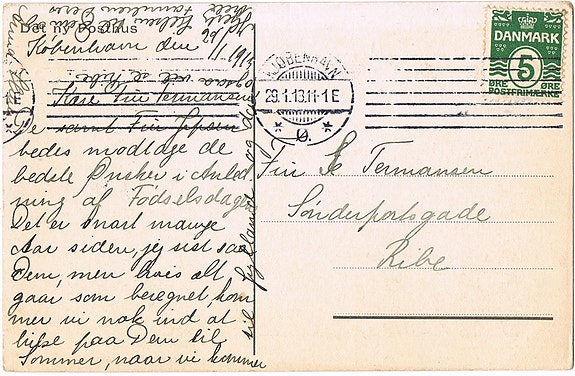 Det ny Posthus
København den 29/1-1913
Kære Fru Termansen
De samt Fru Jepsen
bedes modtage de
bedste Ønsker i Anled
ning af Fødselsdagen
Det er snart mange
Aar siden, jeg sist saa
Dem, men hvis alt
gaar som beregnet, kom
mer vi nok ind at
hilse paa Dem til
Sommer, naar vi kommer
til Jylland og da
ogsaa vil se Ribe
KJØBENHAVN
29.1.13.11-1 E
Ø.
DANMARK
5
ØRE ØRE
POSTFRIMÆRKE
Fru Termansen
Sønderportsgade
Ribe